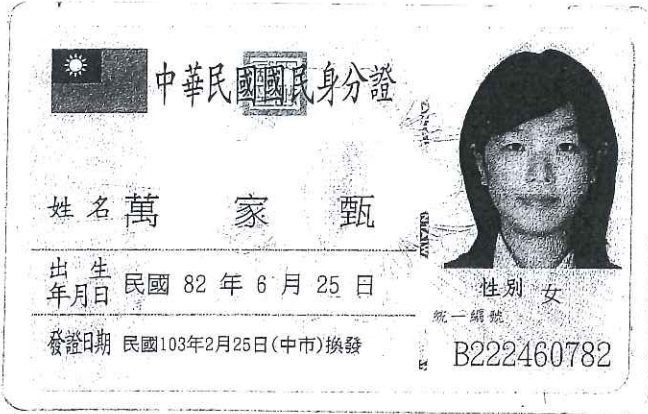 中華民國國民身分證
姓名 萬家甄
出生年月日 民國 82 年 6 月 25 日
發證日期 民國103年2月25日(中市)換發
性別 女
統一編號
B222460782